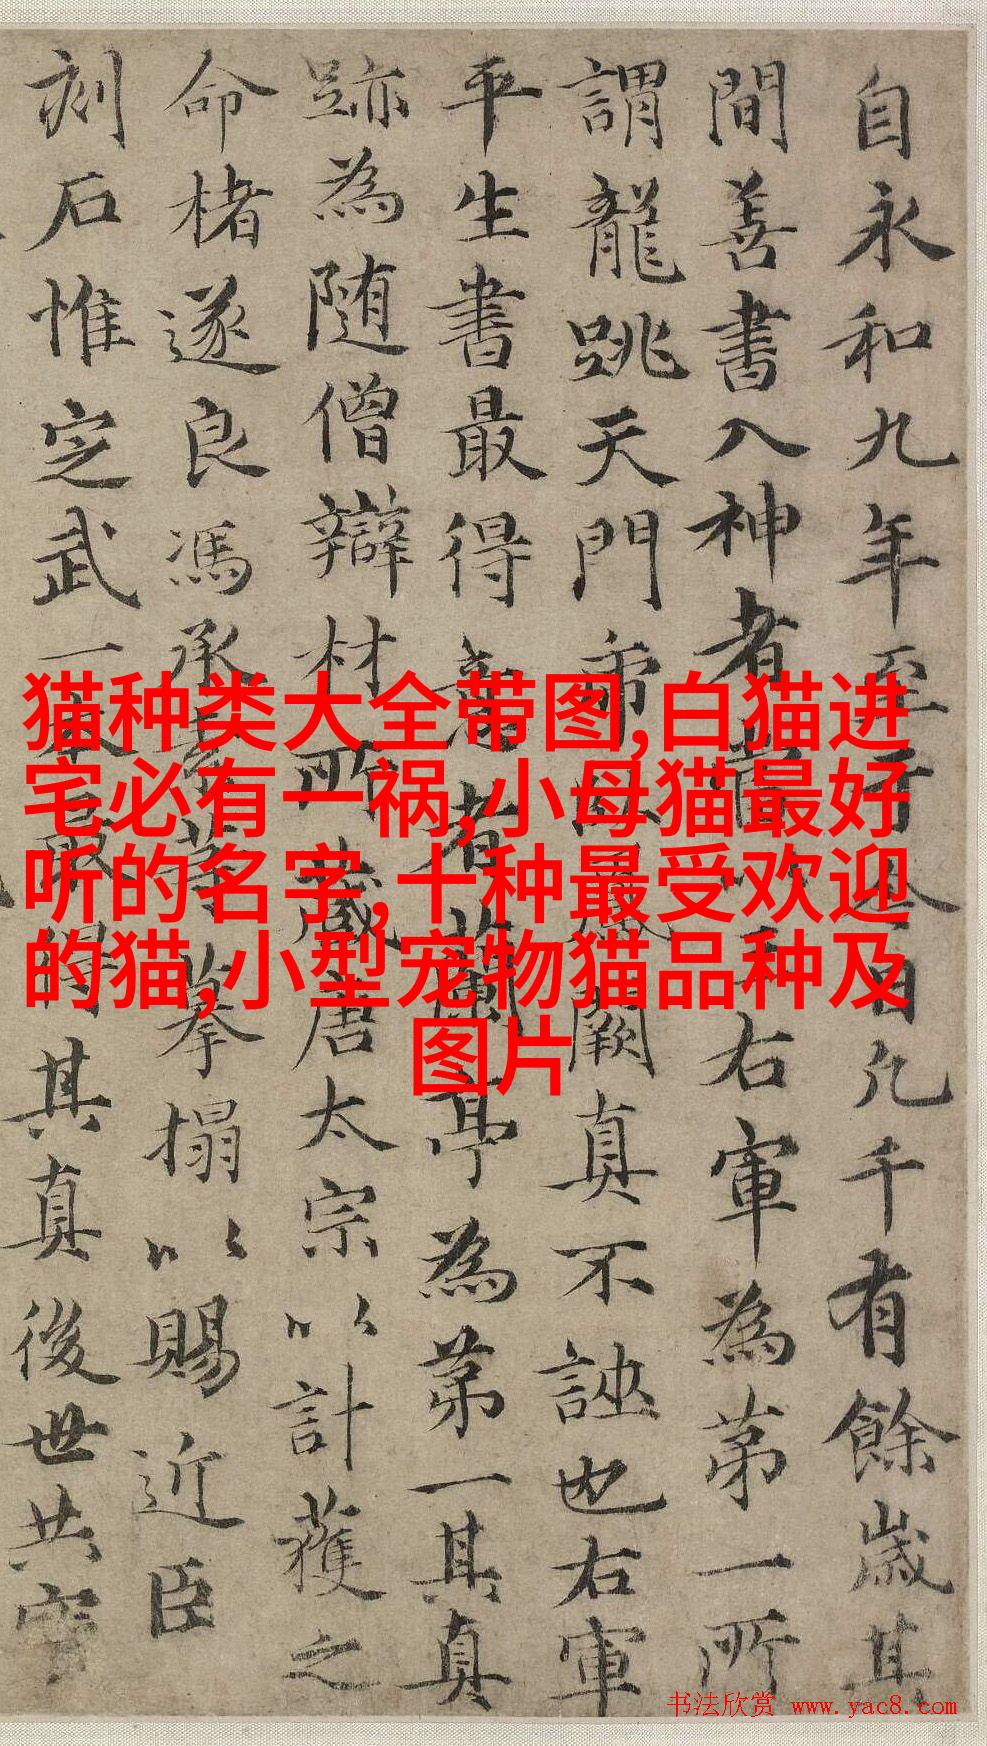 自永和九年至于今日凡千有餘歲其
間善書入神者當以王右軍為第一所
謂龍跳天門虎臥鳳闕真不誣也右軍
平生書最得意者蘭亭為第一其真
跡為隨僧辯材所藏唐太宗以計獲之
命楮遂良馮承素等摹搨以賜近臣
刻石惟定武一本最得其真後世共寳
猫种类大全带图,白猫进
宅必有一祸,小母猫最好
听的名字,十种最受欢迎
的猫,小型宠物猫品种及
图片
书法欣赏 www.yac8.com